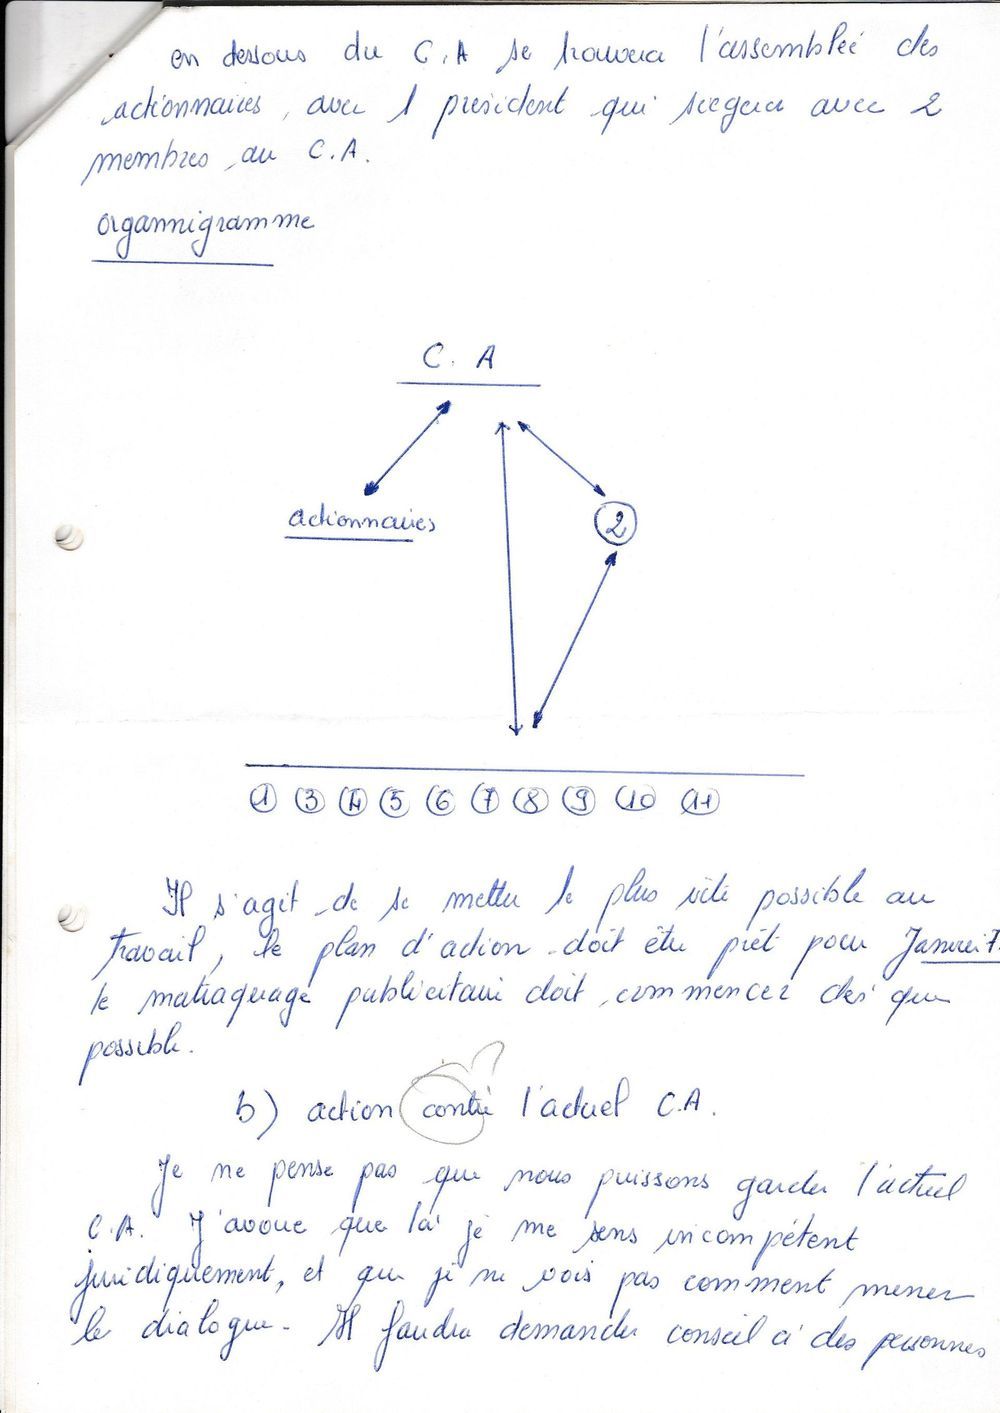 en dessous du C.A se trouvera l'assemblée des
actionnaires, avec 1 président qui siegera avec 2
membres au C.A.
organnigramme
C. A
actionnaires
2
1 3 4 5 6 7 8 9 10 11
Il s'agit de se mettre le plus vite possible au
travail, le plan d'action doit être prêt pour Janvier 7
le matraquage publicitaire doit commencer dès que
possible.
?
b) action contre l'actuel C.A.
Je ne pense pas que nous puissons garder l'actuel
C.A. J'avoue que là je me sens incompétent
juridiquement, et que je ne vois pas comment mener
le dialogue. Il faudra demander conseil à des personnes